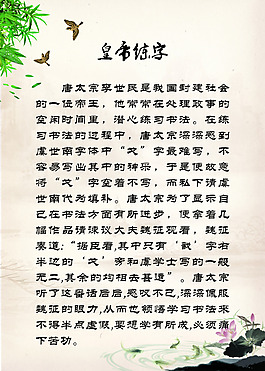 皇帝练字
唐太宗李世民是我国封建社会
的一位帝王，他常常在处理政事的
空闲时间里，潜心练习书法。在练
习书法的过程中，唐太宗深深感到
虞世南字体中“戈”字最难写，不
容易写出其中的神采，于是便故意
将“戈”字空着不写，而私下请虞
世南代为填补。唐太宗为了显示自
己在书法方面有所进步，便拿着几
幅作品请谏议大夫魏征观看，魏征
奏道：“据臣看，其中只有‘戬’字右
半边的‘戈’旁和虞学士写的一般
无二，其余的均相去甚远”。唐太宗
听了这番话后后，感叹不已，深深佩服
魏征的眼力，从而也领悟学习书法来
不得半点虚假，要想学有所成，必须痛
下苦功。